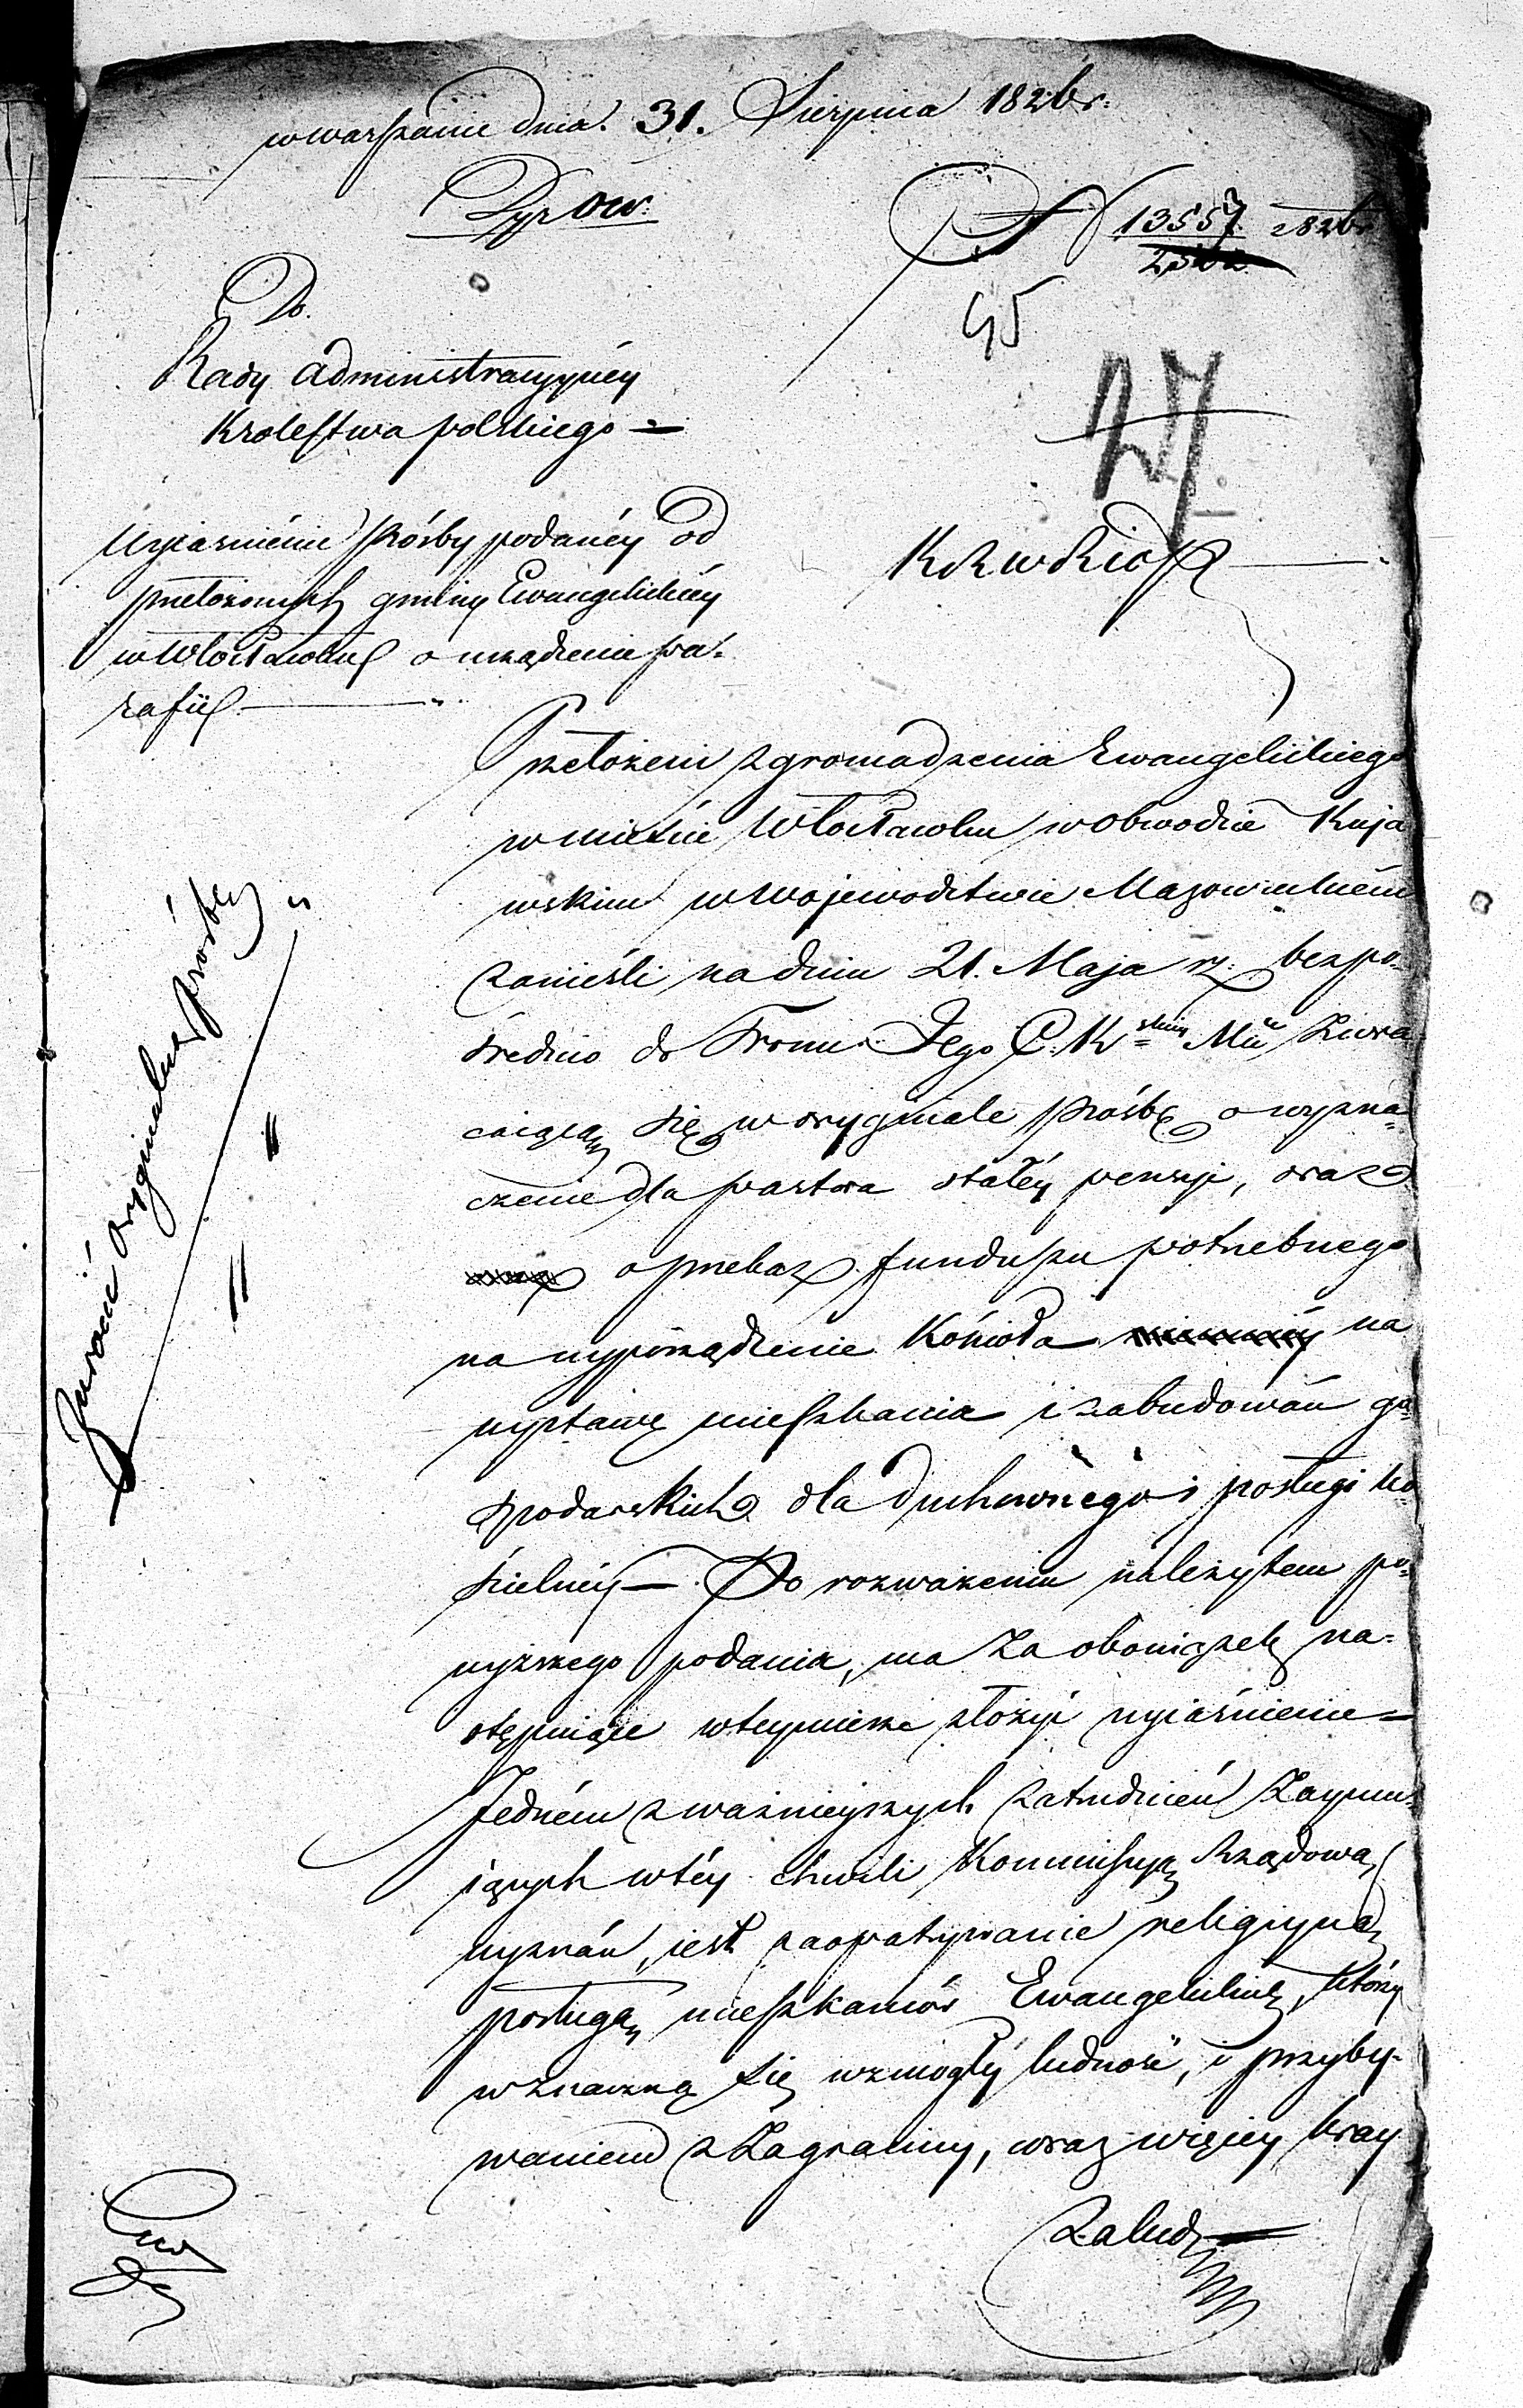 w warszawie dnia. 31. Sierpnia 1826 r.
Do.
Rady administracyynéy
Krolestwa polskiego =
Wyiasnienie prośby podanéy od
przełożonych gminy Ewangelickiéy
w Włocławku o urządzenie pa-
rafii
N 13557 1826
45
27
K R w R i O P
Przełożeni zgromadzenia Ewangelickiego
w mieście Włocławku w obwodzie Kuja
wskim w Województwie Mazowieckiém
zanieśli na dniu 21. Maja r. z. bezpo-
średnio do Tronu Jego C. K skiéy Mći zwra-
caiącą się w oryginale prośbę o wyzna-
czenie dla pastora stałéy pensyi, oraz
o przekaz funduszu potrzebnego
na wyporządzenie Kościoła na
wystawę mieszkania i zabudowań go-
spodarskich dla duchownego i posługi ko-
ścielnéy —. Po rozważeniu należytem po-
wyższego podania, ma za obowiązek na-
stępuiące wteymierze złożyć wyiaśnienie =
Jedném z ważnieyszych zatrudnień zaymu-
iących w téy chwili Kommissyą Rządową
wyznań, iest zaopatrywanie religiyną
posługą mieszkańców Ewangelickich, którzy
w znaczną się wzmogły ludność, i przyby-
waniem z Zagranicy, coraz więcéy kray
zalud
Zwrócić oryginalną prośbę